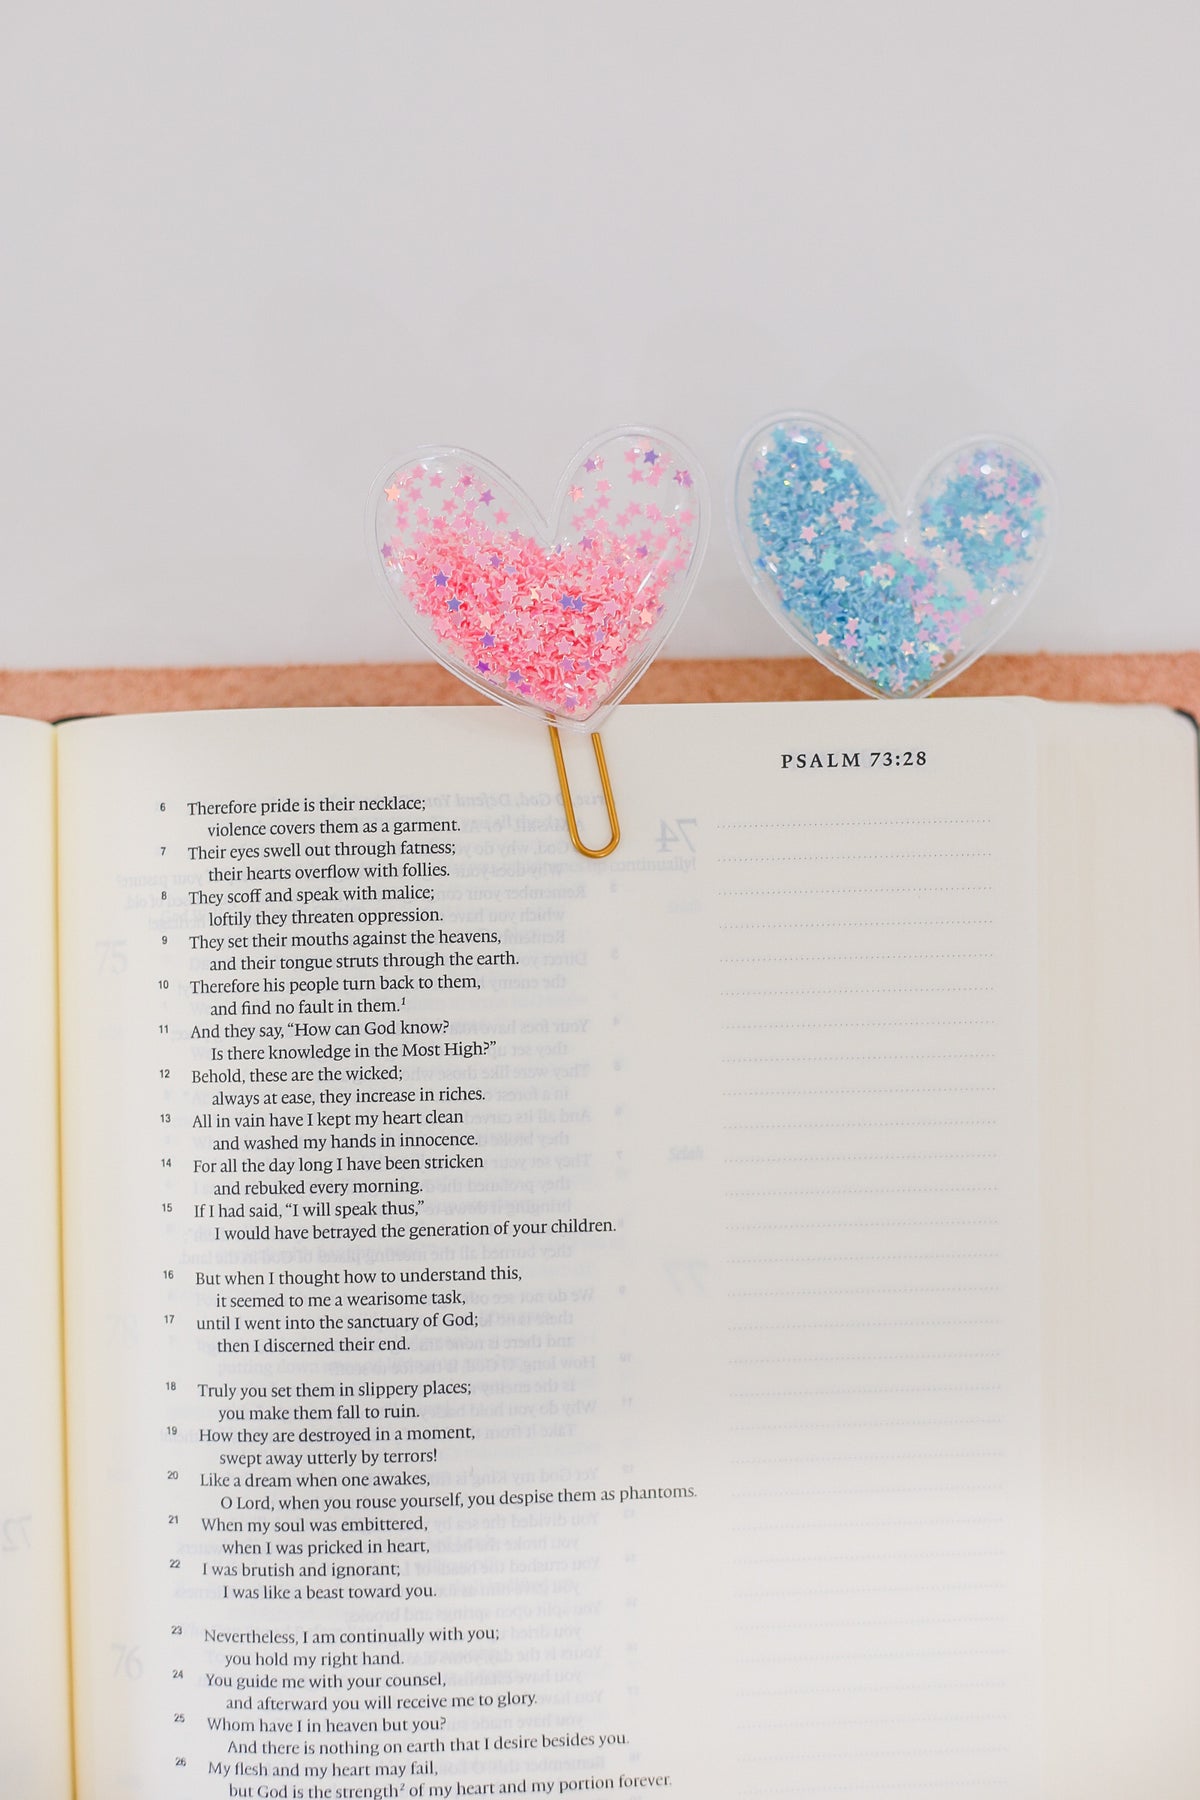 PSALM 73:28
6 Therefore pride is their necklace;
violence covers them as a garment.
7 Their eyes swell out through fatness;
their hearts overflow with follies.
8 They scoff and speak with malice;
loftily they threaten oppression.
9 They set their mouths against the heavens,
and their tongue struts through the earth.
10 Therefore his people turn back to them,
and find no fault in them.1
11 And they say, “How can God know?
Is there knowledge in the Most High?”
12 Behold, these are the wicked;
always at ease, they increase in riches.
13 All in vain have I kept my heart clean
and washed my hands in innocence.
14 For all the day long I have been stricken
and rebuked every morning.
15 If I had said, “I will speak thus,”
I would have betrayed the generation of your children.
16 But when I thought how to understand this,
it seemed to me a wearisome task,
17 until I went into the sanctuary of God;
then I discerned their end.
18 Truly you set them in slippery places;
you make them fall to ruin.
19 How they are destroyed in a moment,
swept away utterly by terrors!
20 Like a dream when one awakes,
O Lord, when you rouse yourself, you despise them as phantoms.
21 When my soul was embittered,
when I was pricked in heart,
22 I was brutish and ignorant;
I was like a beast toward you.
23 Nevertheless, I am continually with you;
you hold my right hand.
24 You guide me with your counsel,
and afterward you will receive me to glory.
25 Whom have I in heaven but you?
And there is nothing on earth that I desire besides you.
26 My flesh and my heart may fail,
but God is the strength2 of my heart and my portion forever.